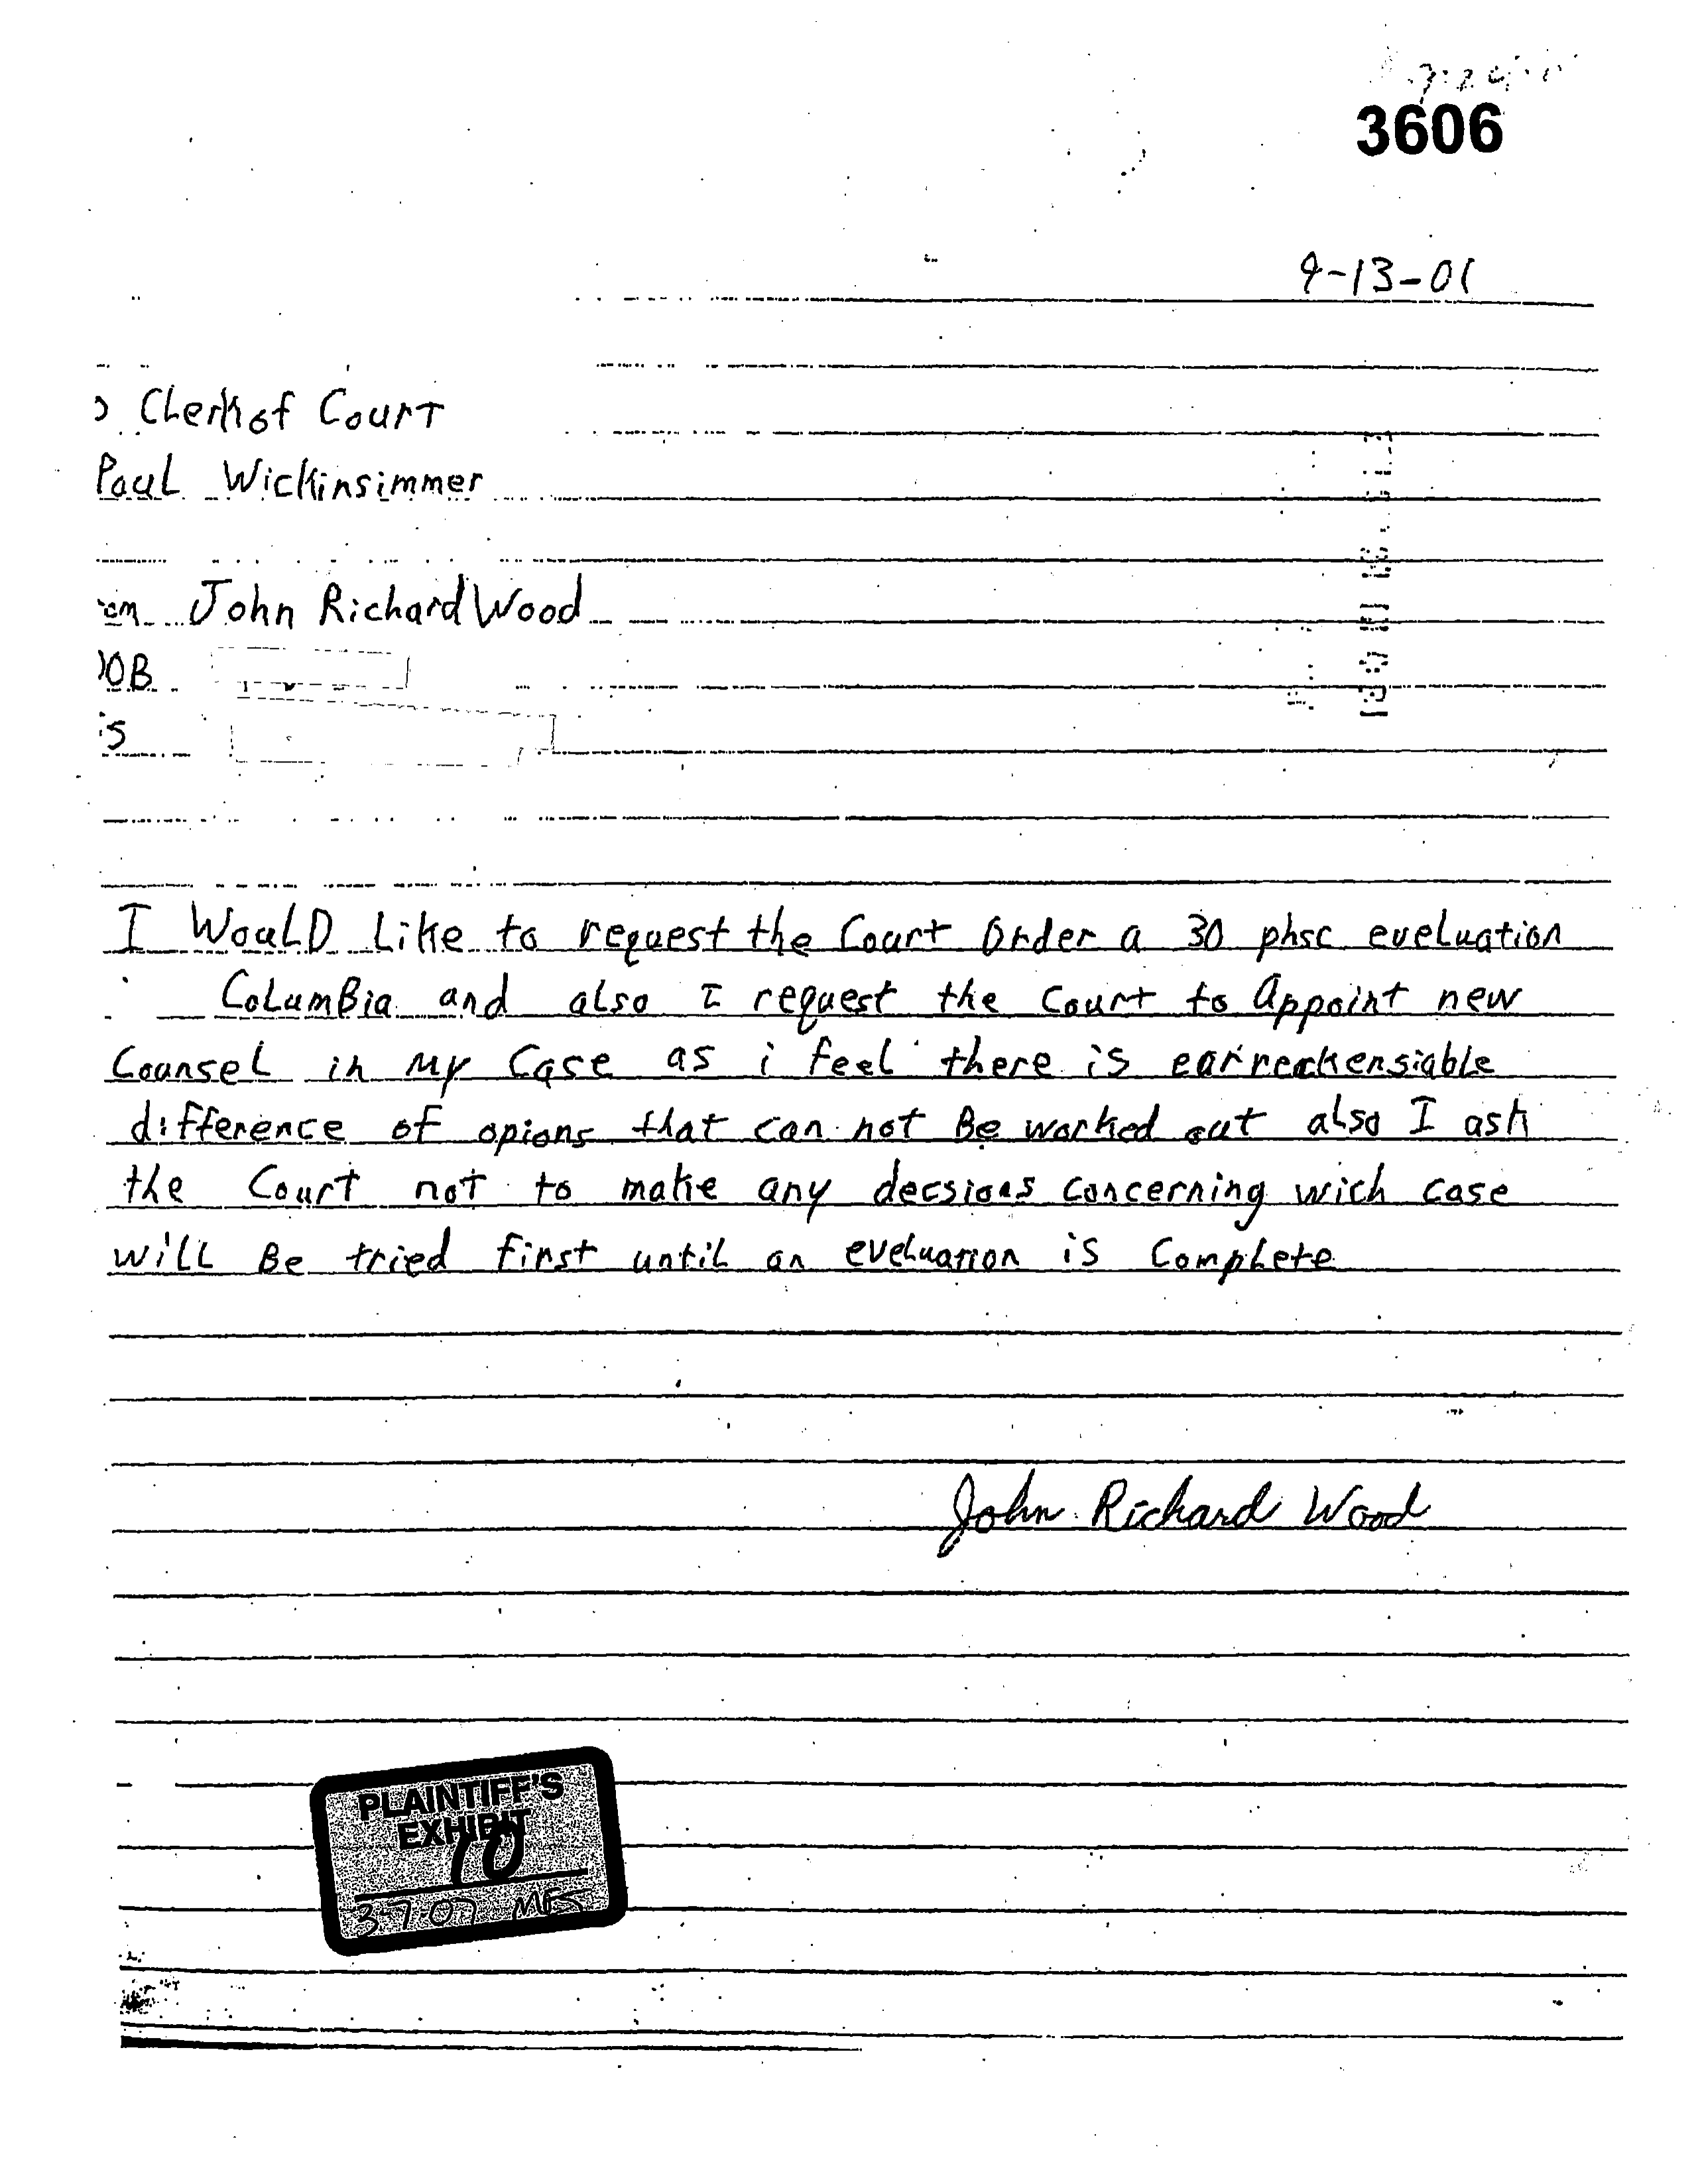 3606
9-13-01
Clerk of Court
Paul Wickinsimmer
John Richard Wood
OB
I WouLD Like to request the Court Order a 30 phsc eveluation
ColumBia and also I request the Court to Appoint new
Counsel in My Case as i feel there is earreckensiable
difference of opions that can not Be worked out also I ask
the Court not to make any decsions concerning wich case
will Be tried first until an eveluation is Complete
John Richard Wood
PLAINTIFF'S
EXHIBIT
10
3-7-07 MFS